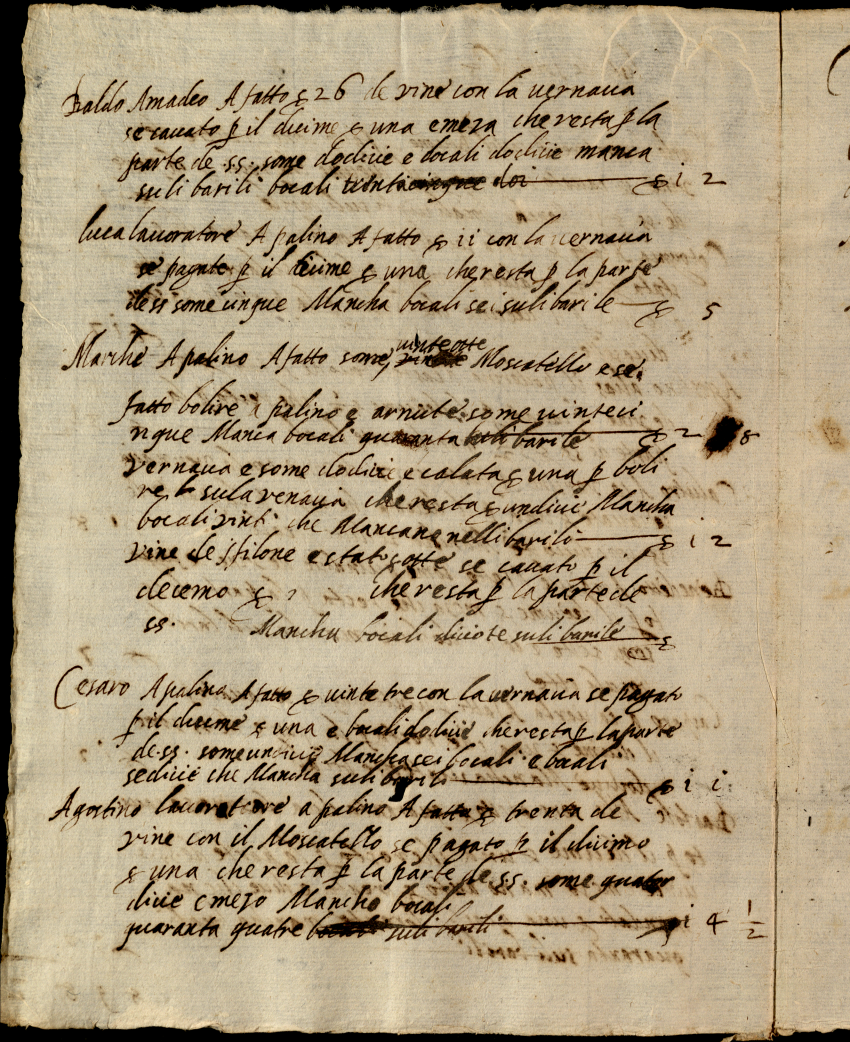 Baldo Amadeo A fatto § 26 de vine con la vernacia
se cavato p il dicime § una emeza che resta p la
parte de ss. some dodicie e bocali dodicie manca
suli barili bocali doi § i 2
luca lavoratore A palino A fatto § ii con la vernacia
se pagate p il dicime § una che resta p la parte
de ss some cinque Mancha bocali sei suli barile § 5
Marche A palino A fatto some vinteotte Moscatello e se
fatto bolire a palino e arnute some vinteci
nque Manca bocali quaranta suli barile § 2 8
vernacia e some dodicie e calata § una p boli
re sula venacia che resta § undicie Mancha
bocali vinti che Mancane nelli barili § i 2
vine de filone e stato cotte se cavato p il
decemo § che resta p la parte de
ss. Mancha bocali diciote suli barile §
Cesaro A palina A fatto § vinte tre con la vernacia se pagato
p il dicime § una e bocali dodicie che resta p la parte
de ss. some undicie Mancha sei bocali e bocali
sedicie che Mancha suli barili § i i
Agostino lavoratore a palino A fatto § trenta de
vine con il Moscatello se pagato p il dicimo
§ una che resta p la parte de ss. some quator
dicie e mezo Mancho bocali
quaranta quatre suli barili i 4 1/2